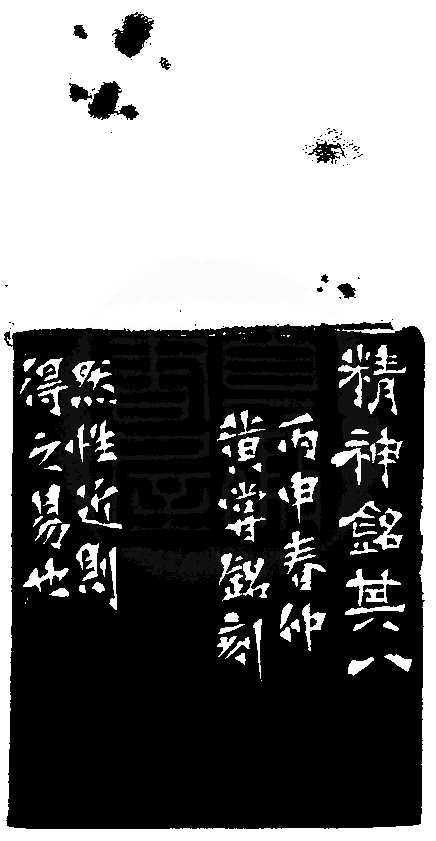 精神銘其八
丙申春仲
黄尊銘刻
然性近則
得之易也